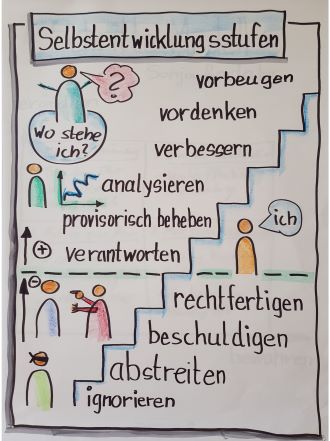 Selbstentwicklungsstufen
?
vorbeugen
vordenken
Wo stehe
ich?
verbessern
analysieren
provisorisch beheben
ich
+
verantworten
-
rechtfertigen
beschuldigen
abstreiten
ignorieren